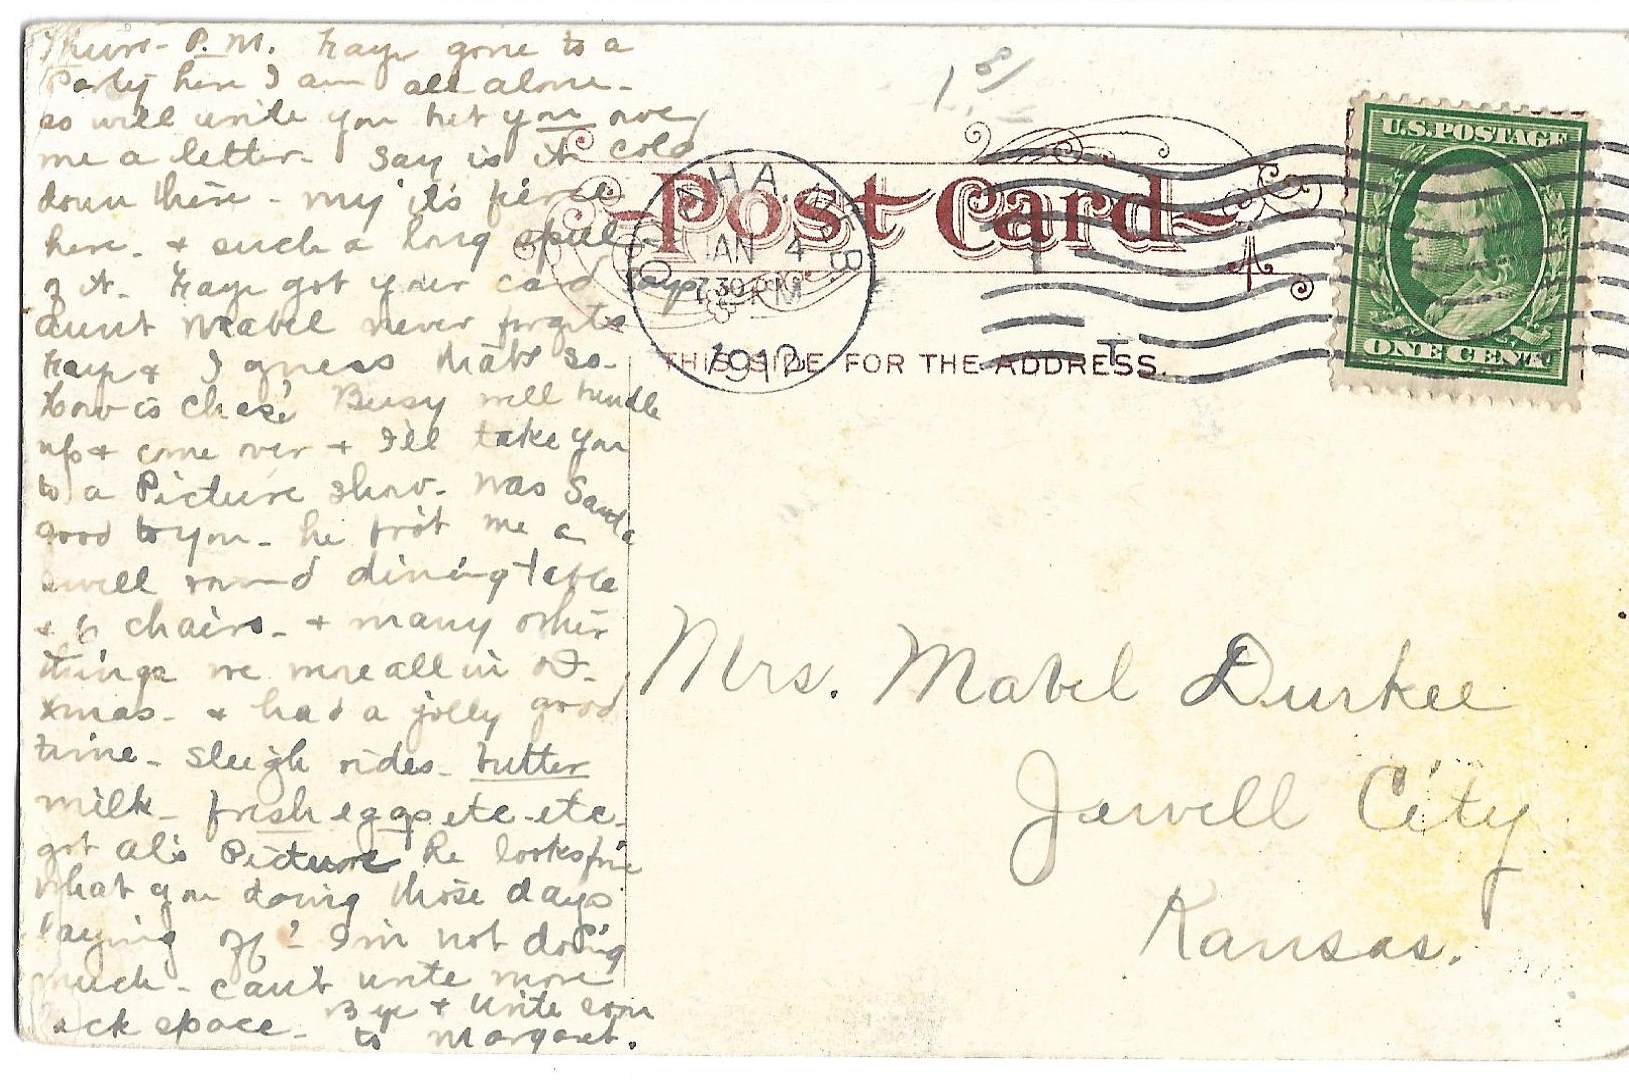 Thurs- P.M. Faye gone to a
Party here I am all alone-
so will write you but you owe
me a letter- Say is it cold
down there - my it's fierce
here. + such a long spell
of it- Faye got your card says
aunt Mabel never forgets
Faye + I guess that's so.
How is Chas? Busy well bundle
up + come over + I'll take you
to a Picture show. Was Santa
good to you - he bro't me a
swell round dining table
+ 6 chairs- + many other
things we were all in
Xmas- + had a jolly good
time- sleigh rides- butter
milk- fresh eggs etc-etc-
got Al's Picture he looks fine
what you doing those days
laying off? I'm not doing
much- can't write more
lack space- Bye + write soon
to Margaret.
1 8/
Post Card
OMAHA, NEB
JAN 4
7 30 PM
1912
THIS SIDE FOR THE ADDRESS.
U.S. POSTAGE
ONE CENT
Mrs. Mabel Durkee
Jewell City
Kansas.